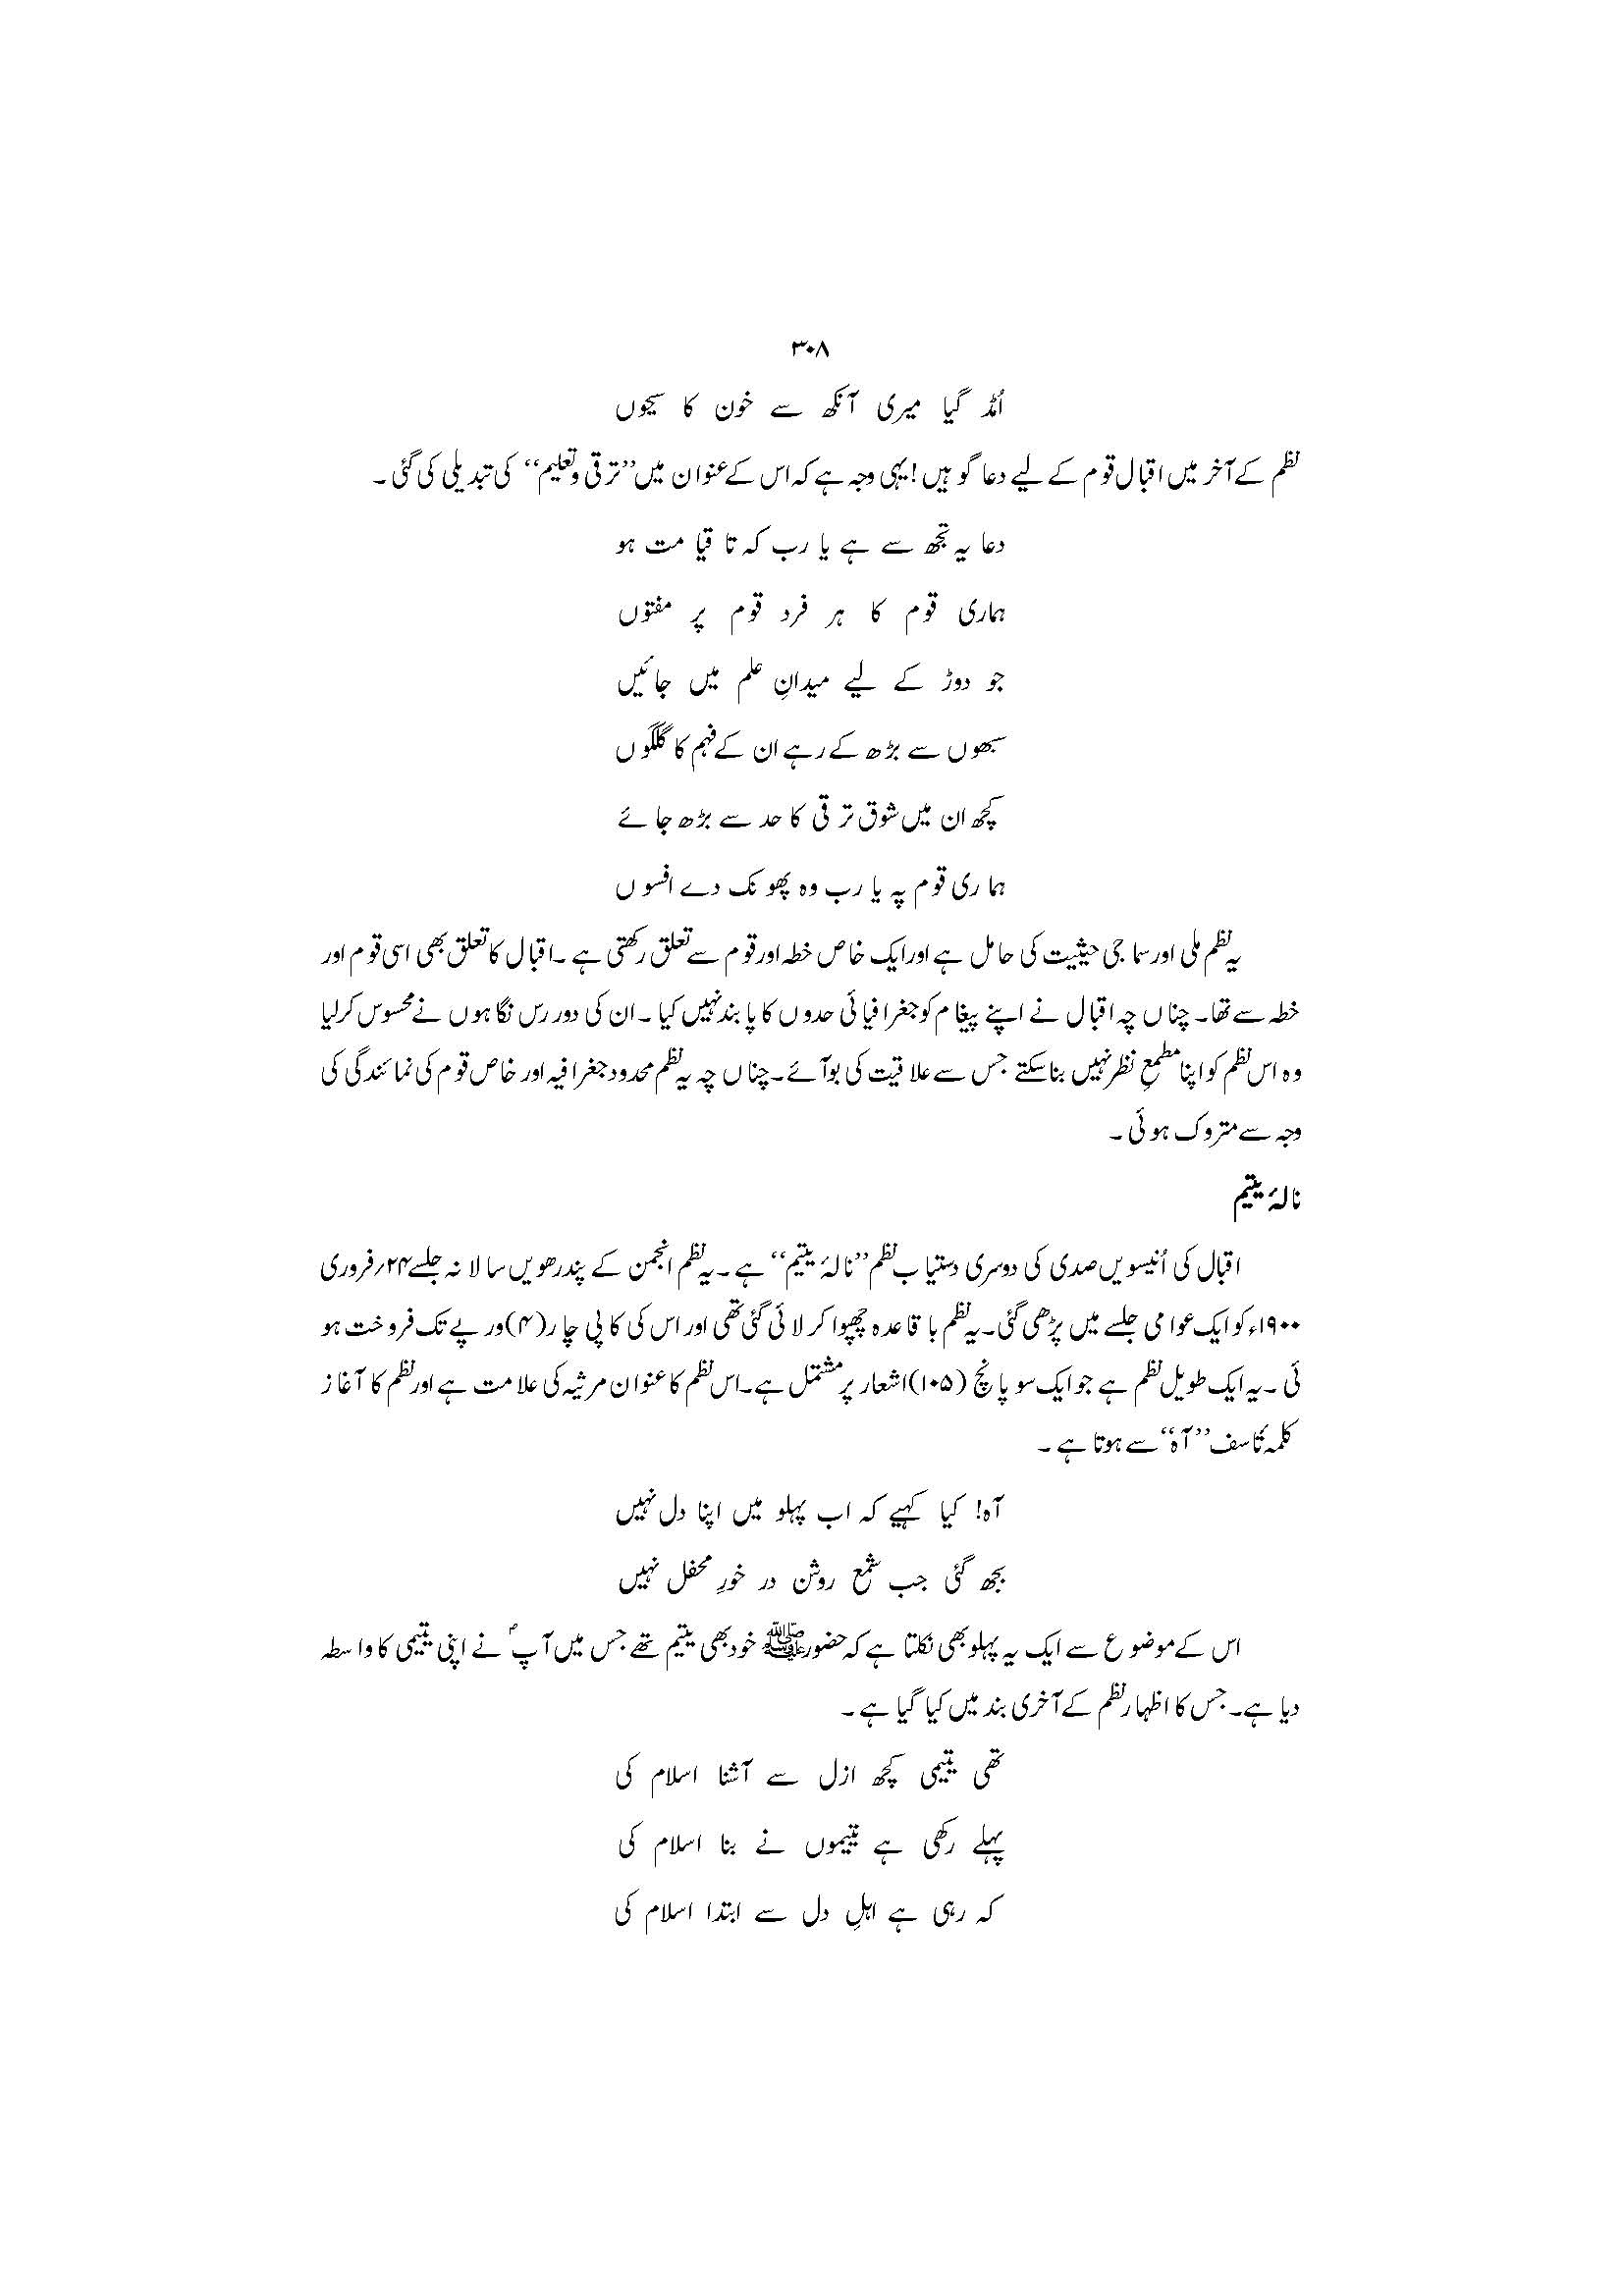 ۳۰۸
اُمڈ گیا میری آنکھ سے خون کا سیحوں
نظم کے آخر میں اقبال قوم کے لیے دعا گو ہیں! یہی وجہ ہے کہ اس کے عنوان میں ’’ترقی و تعلیم‘‘ کی تبدیلی کی گئی۔
دعا یہ تجھ سے ہے یا رب کہ تا قیامت ہو
ہماری قوم کا ہر فرد قوم پر مفتوں
جو دوڑ کے لیے میدانِ علم میں جائیں
سبھوں سے بڑھ کے رہے ان کے فہم کا گلگوں
کچھ ان میں شوق ترقی کا حد سے بڑھ جائے
ہماری قوم پہ یا رب وہ پھونک دے افسوں
یہ نظم ملی اور سماجی حیثیت کی حامل ہے اور ایک خاص خطہ اور قوم سے تعلق رکھتی ہے۔ اقبال کا تعلق بھی اسی قوم اور
خطہ سے تھا۔ چناں چہ اقبال نے اپنے پیغام کو جغرافیائی حدوں کا پابند نہیں کیا۔ ان کی دور رس نگاہوں نے محسوس کرلیا
وہ اس نظم کو اپنا مطمعِ نظر نہیں بنا سکتے جس سے علاقیت کی بو آئے۔ چناں چہ یہ نظم محدود جغرافیہ اور خاص قوم کی نمائندگی کی
وجہ سے متروک ہوئی۔
نالۂ یتیم
اقبال کی اُنیسویں صدی کی دوسری دستیاب نظم ’’نالۂ یتیم‘‘ ہے۔ یہ نظم انجمن کے پندرھویں سالانہ جلسے ۲۴؍فروری
۱۹۰۰ء کو ایک عوامی جلسے میں پڑھی گئی۔ یہ نظم باقاعدہ چھپوا کر لائی گئی تھی اور اس کی کاپی چار(۴)روپے تک فروخت ہو
ئی۔ یہ ایک طویل نظم ہے جو ایک سو پانچ (۱۰۵)اشعار پر مشتمل ہے۔ اس نظم کا عنوان مرثیہ کی علامت ہے اور نظم کا آغاز
کلمہ تاسف ’’آہ‘‘ سے ہوتا ہے۔
آہ! کیا کہیے کہ اب پہلو میں اپنا دل نہیں
بجھ گئی جب شمع روشن در خورِ محفل نہیں
اس کے موضوع سے ایک یہ پہلو بھی نکلتا ہے کہ حضورﷺ خود بھی یتیم تھے جس میں آپؐ نے اپنی یتیمی کا واسطہ
دیا ہے۔ جس کا اظہار نظم کے آخری بند میں کیا گیا ہے۔
تھی یتیمی کچھ ازل سے آشنا اسلام کی
پہلے رکھی ہے یتیموں نے بنا اسلام کی
کہ رہی ہے اہلِ دل سے ابتدا اسلام کی